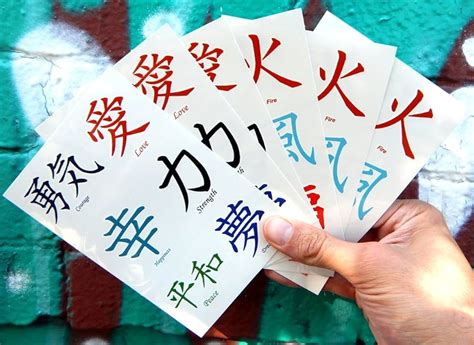 勇気
Courage
愛
Love
愛
Love
幸
Happiness
力
Strength
力
平和
Peace
夢
火
Fire
火
Fire
火
Fire